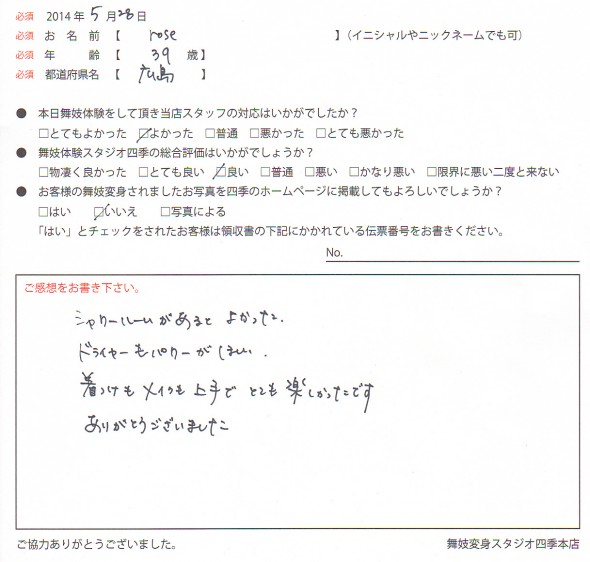 必須 2014年 5月28日
必須 お名前【 rose 】(イニシャルやニックネームでも可)
必須 年齢【 39 歳】
必須 都道府県名【 広島 】
● 本日舞妓体験をして頂き当店スタッフの対応はいかがでしたか？
□とてもよかった ☑よかった □普通 □悪かった □とても悪かった
● 舞妓体験スタジオ四季の総合評価はいかがでしょうか？
□物凄く良かった □とても良い ☑良い □普通 □悪い □かなり悪い □限界に悪い二度と来ない
● お客様の舞妓変身されましたお写真を四季のホームページに掲載してもよろしいでしょうか？
□はい ☑いいえ □写真による
「はい」とチェックをされたお客様は領収書の下記にかかれている伝票番号をお書きください。
No.
ご感想をお書き下さい。
シャワールームがあるとよかった.
ドライヤーもパワーがほしい.
着つけもメイクも上手でとても楽しかったです
ありがとうございました
ご協力ありがとうございました。 舞妓変身スタジオ四季本店